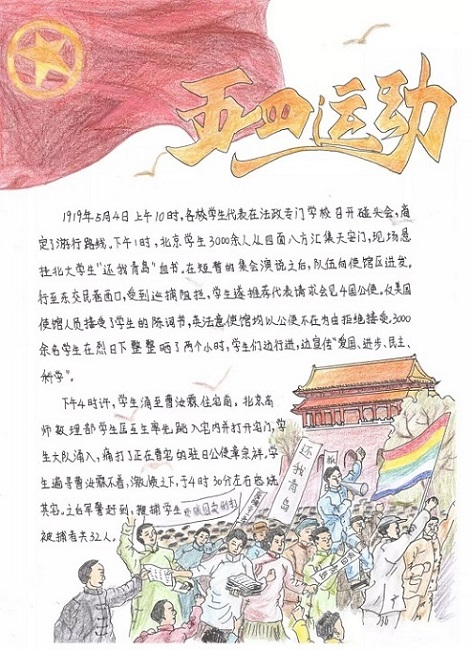 五四运动
1919年5月4日上午10时,各校学生代表在法政专门学校召开碰头会,商
定了游行路线。下午1时,北京学生3000余人从四面八方汇集天安门,现场悬
挂北大学生“还我青岛”血书。在短暂的集会演说之后,队伍向使馆区进发。
行至东交民巷西口,受到巡捕阻拦,学生遂推荐代表请求会见4国公使。仅美国
使馆人员接受了学生的陈词书,英法意使馆均以公使不在为由拒绝接受。3000
余名学生在烈日下整整晒了两个小时,学生们边行进,边宣传“爱国、进步、民主、
科学”。
下午4时许,学生涌至曹汝霖住宅前,北京高
师数理部学生匡互生率先跳入宅内并打开宅门,学
生大队涌入,痛打了正在曹宅的驻日公使章宗祥,学
生遍寻曹汝霖不着,激愤之下,于4时30分左右
其宅。之后军警赶到,搜捕学生
被捕者共32人。
还我青岛